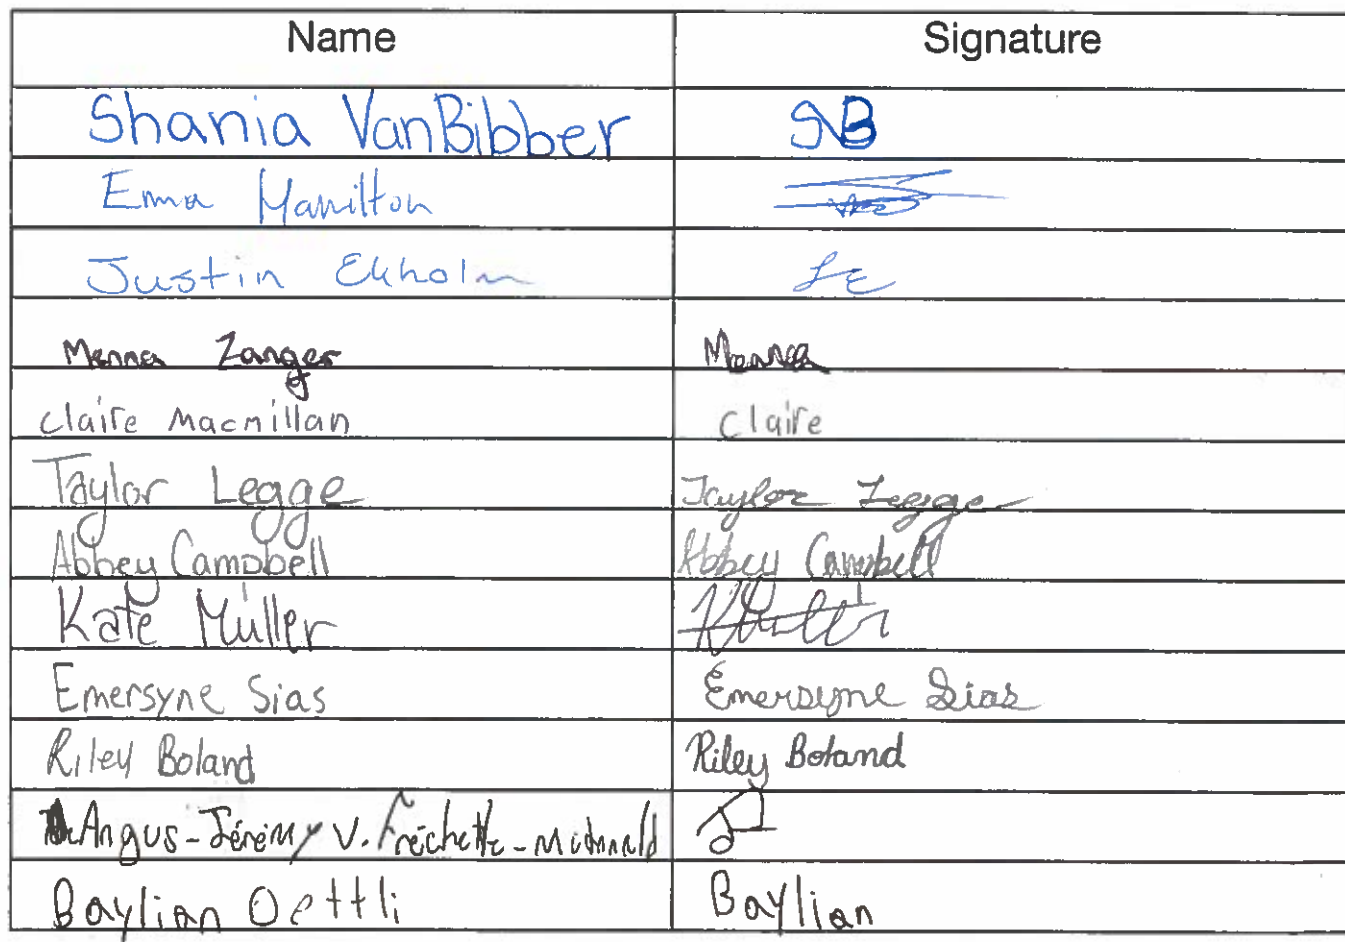 Name Signature
Shania VanBibber SVB
Emma Hamilton
Justin Ekholm JE
Menna Zanger Menna
Claire Macmillan Claire
Taylor Legge Taylor Legge
Abbey Campbell Abbey Campbell
Kate Müller KMüller
Emersyne Sias Emersyne Sias
Riley Boland Riley Boland
Angus-Jérémy V. Fréchette-Mcdonald
Baylian Oettli Baylian